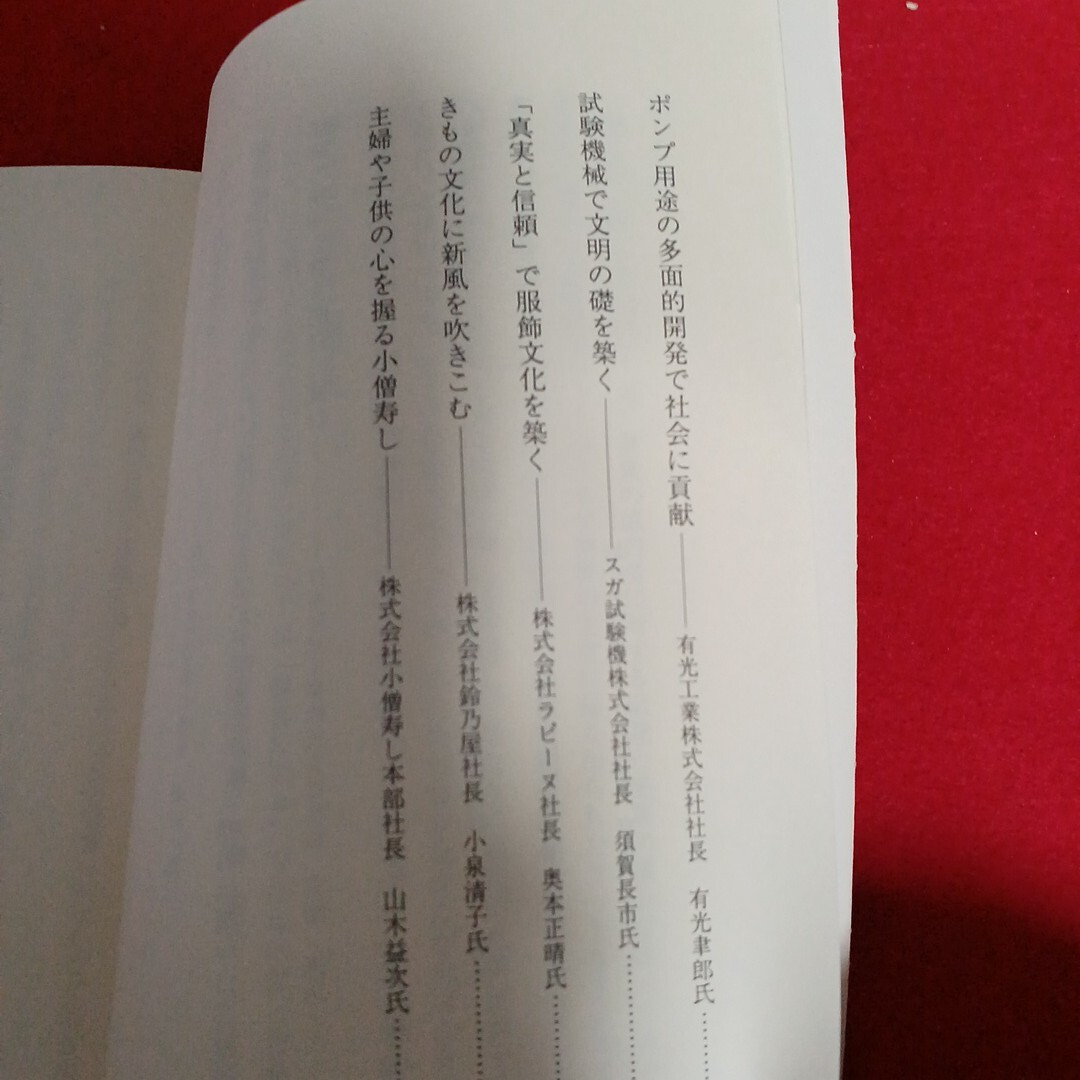 ポンプ用途の多面的開発で社会に貢献――有光工業株式会社社長 有光聿郎氏……
試験機械で文明の礎を築く――スガ試験機株式会社社長 須賀長市氏……
「真実と信頼」で服飾文化を築く――株式会社ラピーヌ社長 奥本正晴氏……
きもの文化に新風を吹きこむ――株式会社鈴乃屋社長 小泉清子氏……
主婦や子供の心を握る小僧寿し――株式会社小僧寿し本部社長 山木益次氏……